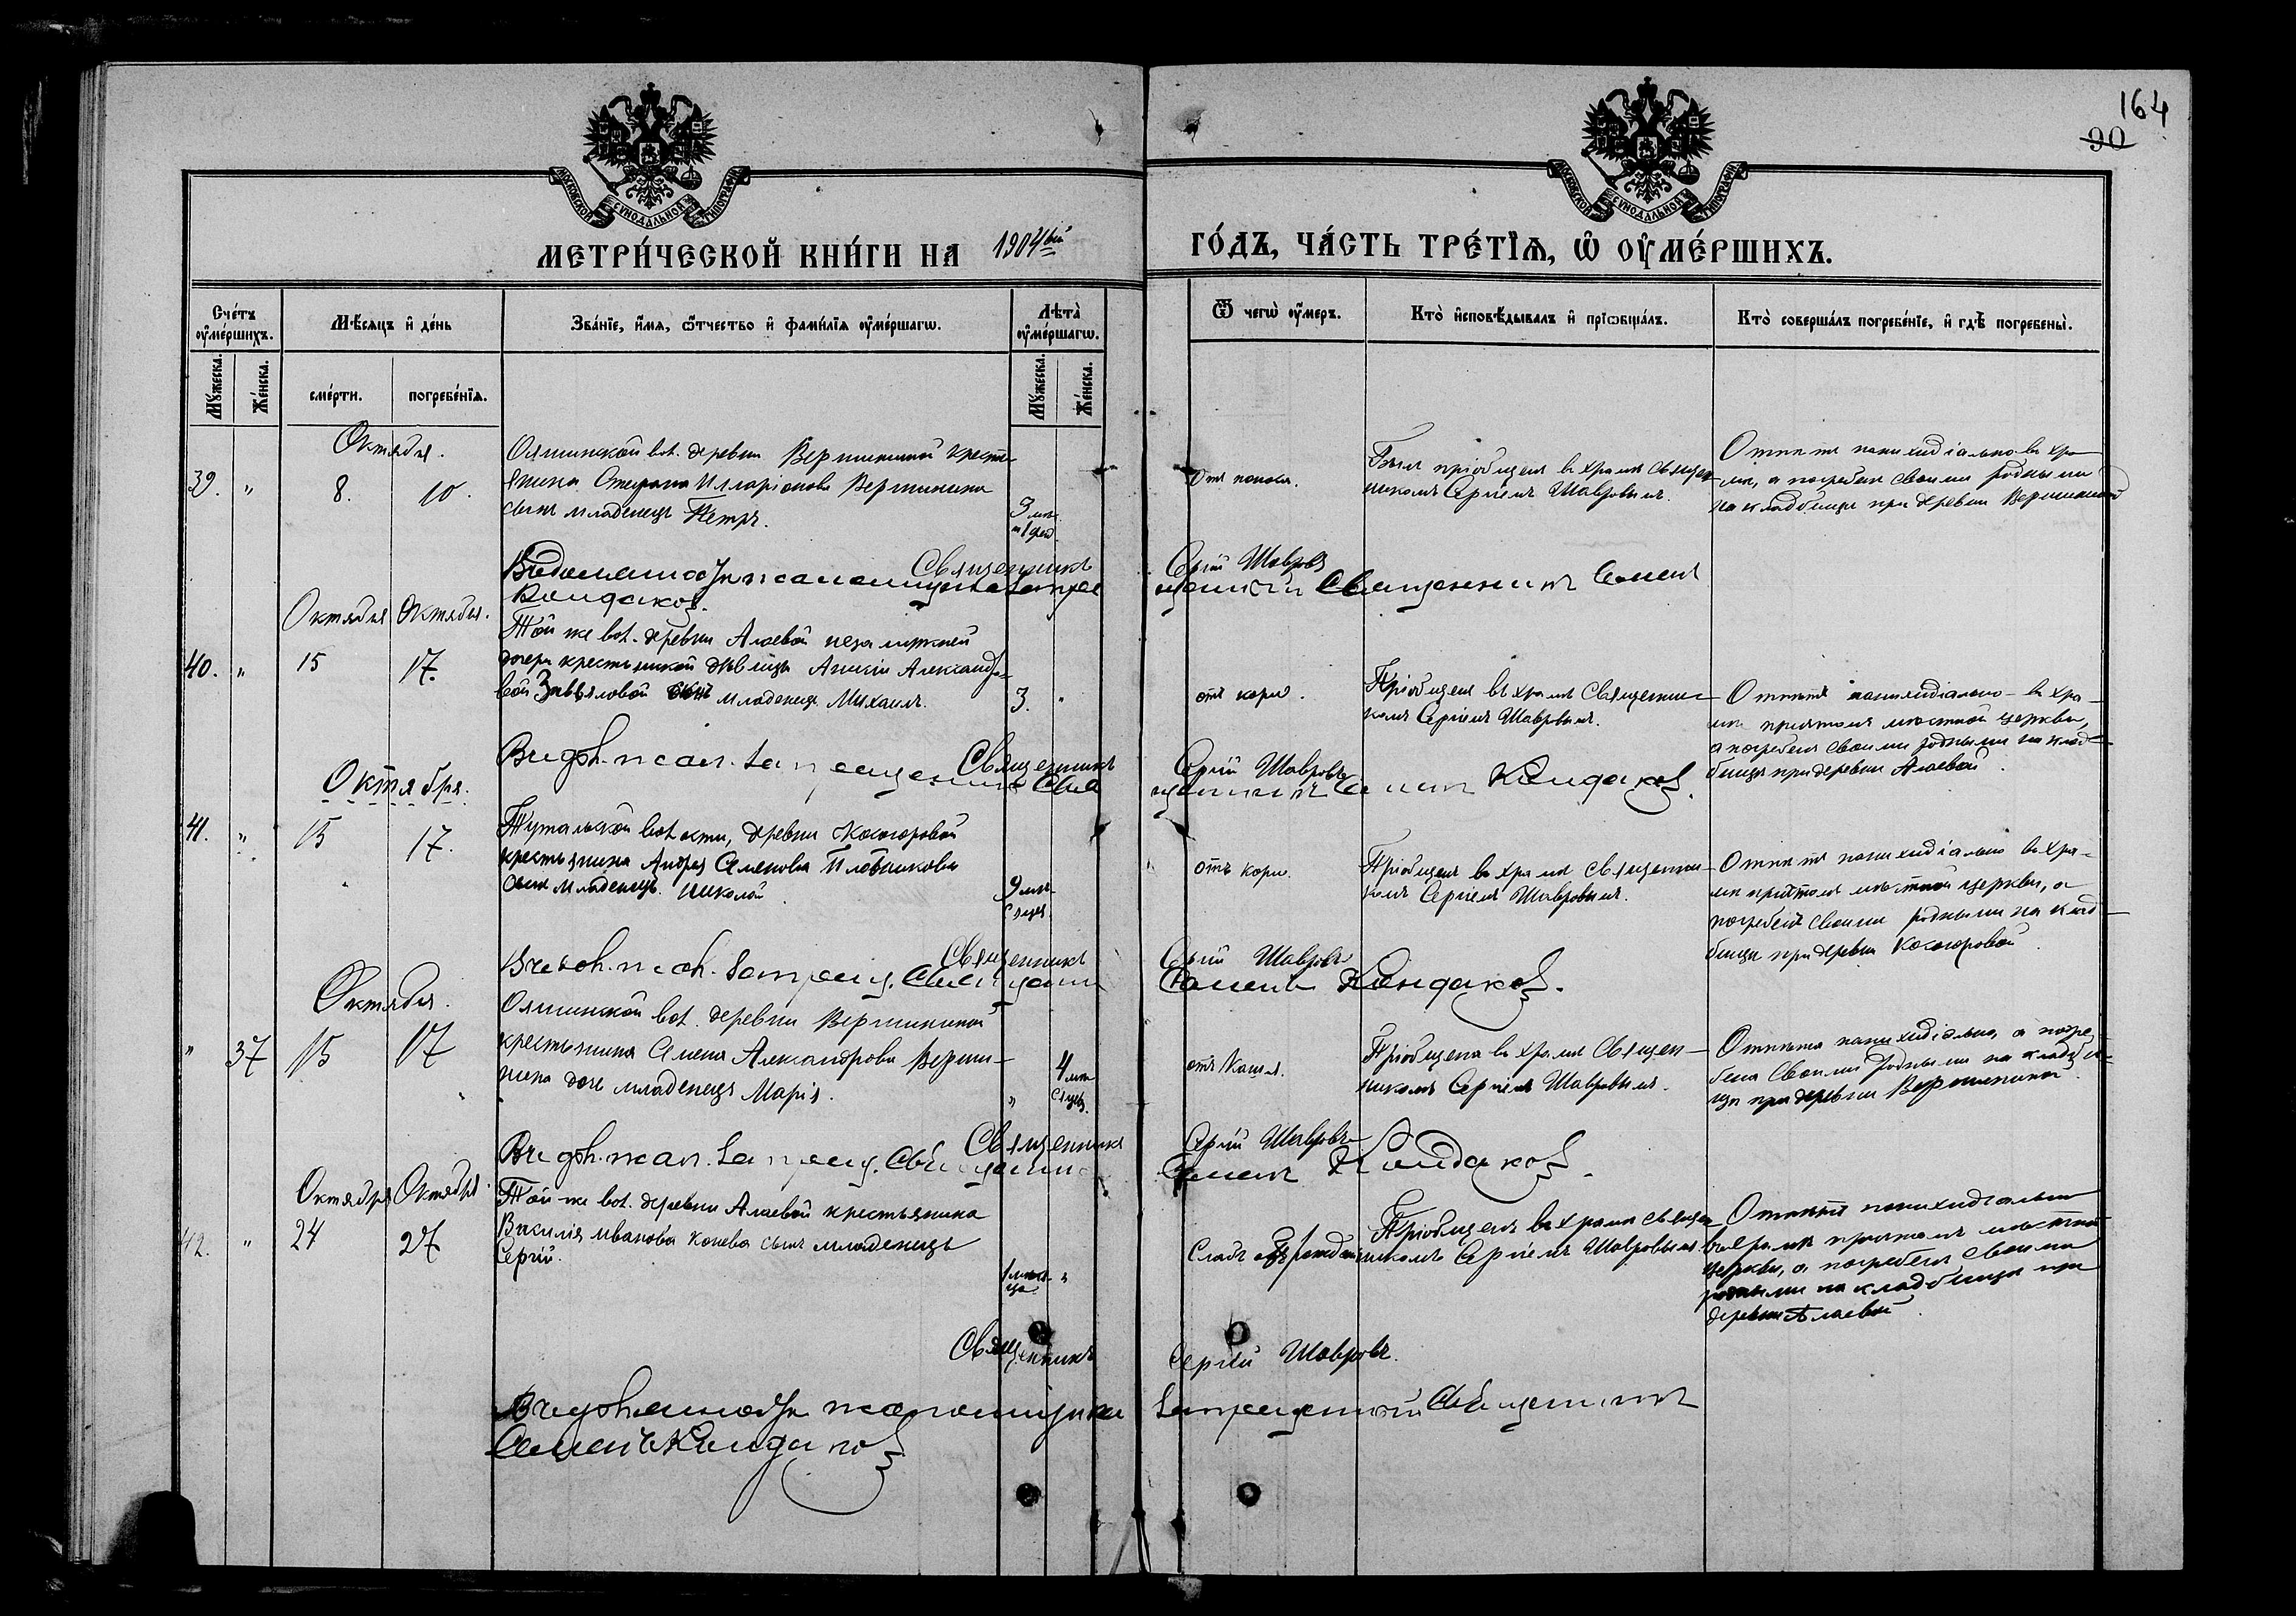 164
90
МОСКОВСКОЙ СУНОДАЛЬНОЙ ТИПОГРАФIИ
МОСКОВСКОЙ СУНОДАЛЬНОЙ ТИПОГРАФIИ
МЕТРИ́ЧЕСКОЙ КНИ́ГИ НА 1904ый ГО́ДЪ, ЧА́СТЬ ТРЕ́ТIѦ, Ѡ ОУМЕ́РШИХЪ.
Сче́тъ оумершихъ.
Мѣсяцъ и де́нь
Зва́нїе, и҆́мя, ѿтчество и фами́лїя оуме́ршагѡ.
Лѣта̀ оуме́ршагѡ.
Ѿ чегѡ̀ оу́меръ.
Кто̀ и҆сповѣ́дывалъ и прїѡбща́лъ.
Кто̀ соверша́лъ погребе́нїе, и гдѣ̀ погребены̀.
Мꙋжеска.
Же́нска.
сме́рти.
погребе́нїѧ.
Мꙋжеска.
Же́нска.
Октября.
39. " 8. 10.
Ояшинской вол. деревни Вершининой кресть-
янина Стефана Илларіонова Вершинина
сынъ младенецъ Петръ.
3 мѣс.
Отъ поноса.
Былъ пріобщенъ въ храмѣ священ-
никомъ Сергіемъ Шавровымъ.
Отпѣтъ панихидіально въ хра-
мѣ, а погребенъ своими родными
на кладбищѣ при деревни Вершининой
Священникъ Сергій Шавровъ
Священникъ Семенъ
Кондаковъ.
Октября Октября.
40. " 15 17.
Той же вол. деревни Алаевой незамужней
дочери крестьянской дѣвицы Александро-
вой Завьяловой сынъ младенецъ Михаилъ.
3. "
отъ кори.
Пріобщенъ въ храмѣ Священни-
комъ Сергіемъ Шавровымъ.
Отпѣтъ панихидіально въ хра-
мѣ причтомъ мѣстной церкви,
а погребенъ своими родными на клад-
бищѣ при деревни Алаевой.
Священникъ Сергій Шавровъ
Семенъ Кондаковъ.
Октября.
41. " 15 17.
Тутальской волости, деревни Косогоровой
крестьянина Андрея Семенова Плотникова
сынъ младенецъ Николай.
9 мѣ-
сяцев.
отъ кори.
Пріобщенъ въ храмѣ Священни-
комъ Сергіемъ Шавровымъ.
Отпѣтъ панихидіально въ хра-
мѣ причтомъ мѣстной церкви, а
погребенъ своими родными на клад-
бищѣ при деревни Косогоровой.
Священникъ Сергій Шавровъ
Семенъ Кондаковъ.
Октября.
" 37 15 17
Ояшинской вол. деревни Вершининой
крестьянина Семена Александрова Верши-
нина дочь младенецъ Марія.
" 4 мѣ-
сяцев.
отъ кашля.
Пріобщена въ храмѣ Священ-
никомъ Сергіемъ Шавровымъ.
Отпѣта панихидіально, а погре-
бена своими родными на кладби-
щѣ при деревни Вершининой.
Священникъ Сергій Шавровъ
Семенъ Кондаковъ.
Октября Октября.
42. " 24 27
Той же вол. деревни Алаевой крестьянина
Василія Иванова Конева сынъ младенецъ
Сергій.
1 мѣся-
ца. "
Слабъ отъ рожд.
Пріобщенъ въ храмѣ священ-
никомъ Сергіемъ Шавровымъ.
Отпѣтъ панихидіально
въ храмѣ причтомъ мѣстной
церкви, а погребенъ своими
родными на кладбищѣ при
деревни Алаевой.
Священникъ Сергій Шавровъ.
Священникъ
Семенъ Кондаковъ